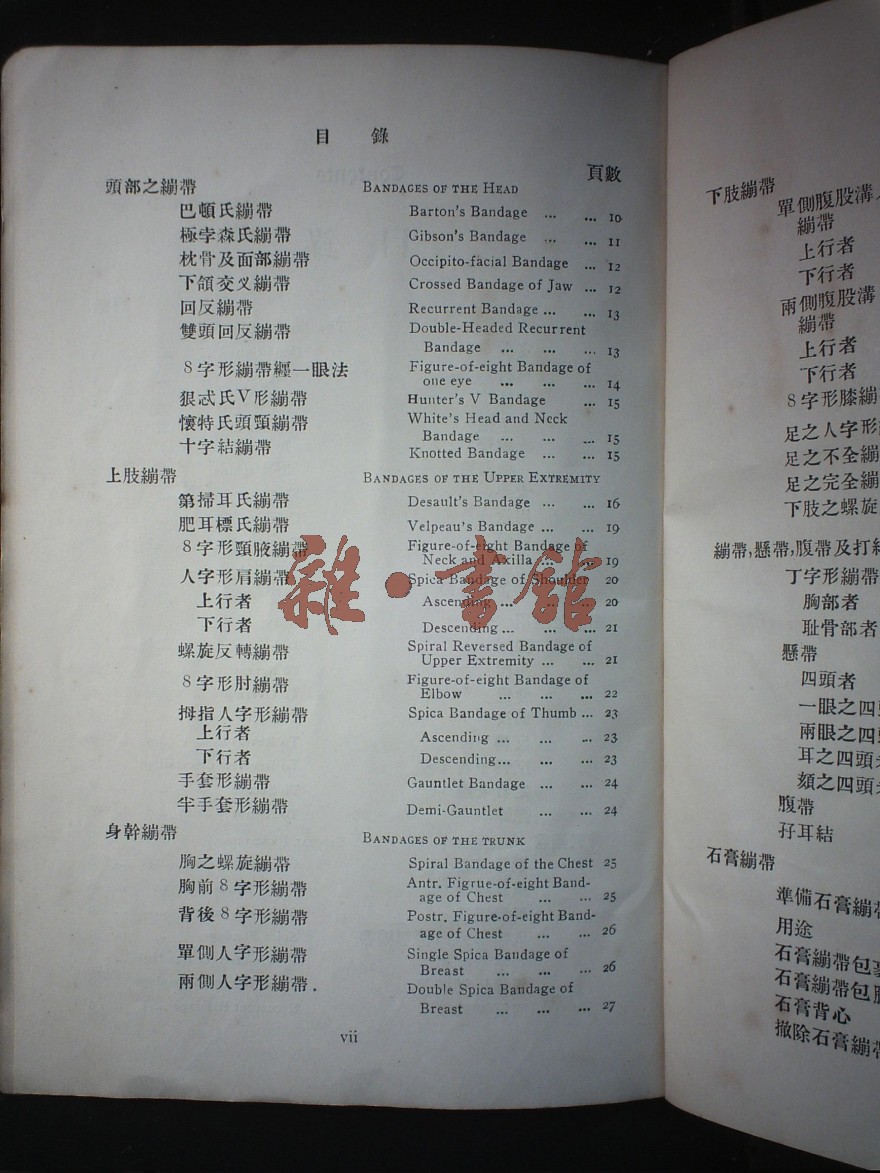 目 錄
頁數
頭部之繃帶 BANDAGES OF THE HEAD
巴頓氏繃帶 Barton's Bandage ... ... 10
極孛森氏繃帶 Gibson's Bandage ... ... 11
枕骨及面部繃帶 Occipito-facial Bandage ... 12
下頜交叉繃帶 Crossed Bandage of Jaw ... 12
回反繃帶 Recurrent Bandage ... ... 13
雙頭回反繃帶 Double-Headed Recurrent
Bandage ... ... ... 13
8字形繃帶纏一眼法 Figure-of-eight Bandage of
one eye ... ... ... 14
狠忒氏V形繃帶 Hunter's V Bandage ... 15
懷特氏頭頸繃帶 White's Head and Neck
Bandage ... ... ... 15
十字結繃帶 Knotted Bandage ... ... 15
上肢繃帶 BANDAGES OF THE UPPER EXTREMITY
第掃耳氏繃帶 Desault's Bandage ... ... 16
肥耳標氏繃帶 Velpeau's Bandage ... ... 19
8字形頸腋繃帶 Figure-of-eight Bandage of
Neck and Axilla ... ... 19
人字形肩繃帶 Spica Bandage of Shoulder 20
上行者 Ascending ... ... ... 20
下行者 Descending ... ... ... 21
螺旋反轉繃帶 Spiral Reversed Bandage of
Upper Extremity ... ... 21
8字形肘繃帶 Figure-of-eight Bandage of
Elbow ... ... ... 22
拇指人字形繃帶 Spica Bandage of Thumb ... 23
上行者 Ascending ... ... ... 23
下行者 Descending... ... ... 23
手套形繃帶 Gauntlet Bandage ... ... 24
半手套形繃帶 Demi-Gauntlet ... ... 24
身幹繃帶 BANDAGES OF THE TRUNK
胸之螺旋繃帶 Spiral Bandage of the Chest 25
胸前8字形繃帶 Antr. Figrue-of-eight Band-
age of Chest ... ... 25
背後8字形繃帶 Postr. Figure-of-eight Band-
age of Chest ... ... 26
單側人字形繃帶 Single Spica Bandage of
Breast ... ... ... 26
兩側人字形繃帶. Double Spica Bandage of
Breast ... ... ... 27
vii
雜·書館
下肢繃帶
單側腹股溝人
繃帶
上行者
下行者
兩側腹股溝
繃帶
上行者
下行者
8字形膝繃
足之人字形
足之不全繃
足之完全繃
下肢之螺旋
繃帶,懸帶,腹帶及打
丁字形繃帶
胸部者
耻骨部者
懸帶
四頭者
一眼之四頭
兩眼之四
耳之四頭
頦之四頭者
腹帶
孖耳結
石膏繃帶
準備石膏繃帶
用途
石膏繃帶包裹
石膏繃帶包
石膏背心
撤除石膏繃帶